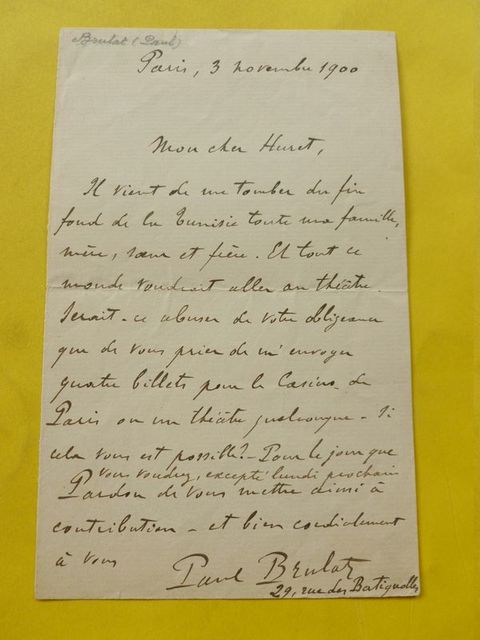 Brulat (Paul)
Paris, 3 novembre 1900
Mon cher Huret,
Il vient de me tomber du fin
fond de la Tunisie toute ma famille,
mère, sœur et frère. Et tout ce
monde voudrait aller au théâtre.
Serait-ce abuser de votre obligeance
que de vous prier de m'envoyer
quatre billets pour le Casino de
Paris ou un théâtre quelconque - si
cela vous est possible? - Pour le jour que
vous voudrez, excepté lundi prochain
Pardon de vous mettre ainsi à
contribution - et bien cordialement
à vous
Paul Brulat
29, rue des Batignolles